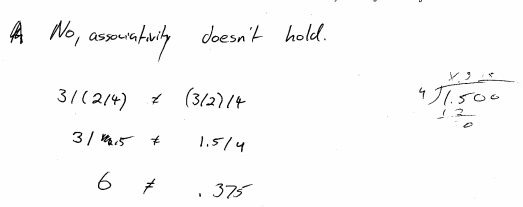 No, associativity doesn't hold.
3/(2/4) ≠ (3/2)/4
3/.5 ≠ 1.5/4
6 ≠ .375
4 1.500
1 2
0